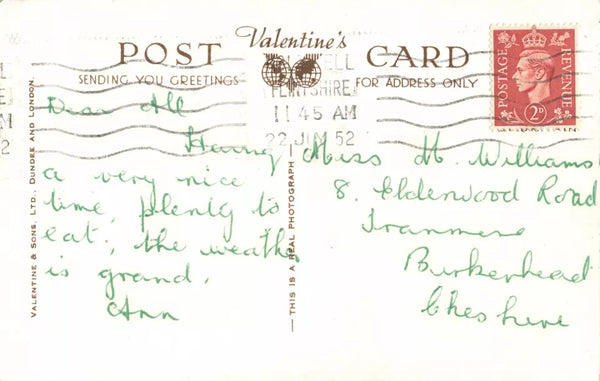 POST Valentine's CARD
SENDING YOU GREETINGS FOR ADDRESS ONLY
FLINTSHIRE
11 45 AM
22 JUN 52
POSTAGE REVENUE
2D
Dear All
Having
a very nice
time, plenty to
eat, the weather
is grand.
Ann
Miss M. Williams
8. Elderwood Road
Tranmere
Birkenhead
Cheshire
VALENTINE & SONS, LTD., DUNDEE AND LONDON.
— THIS IS A REAL PHOTOGRAPH —